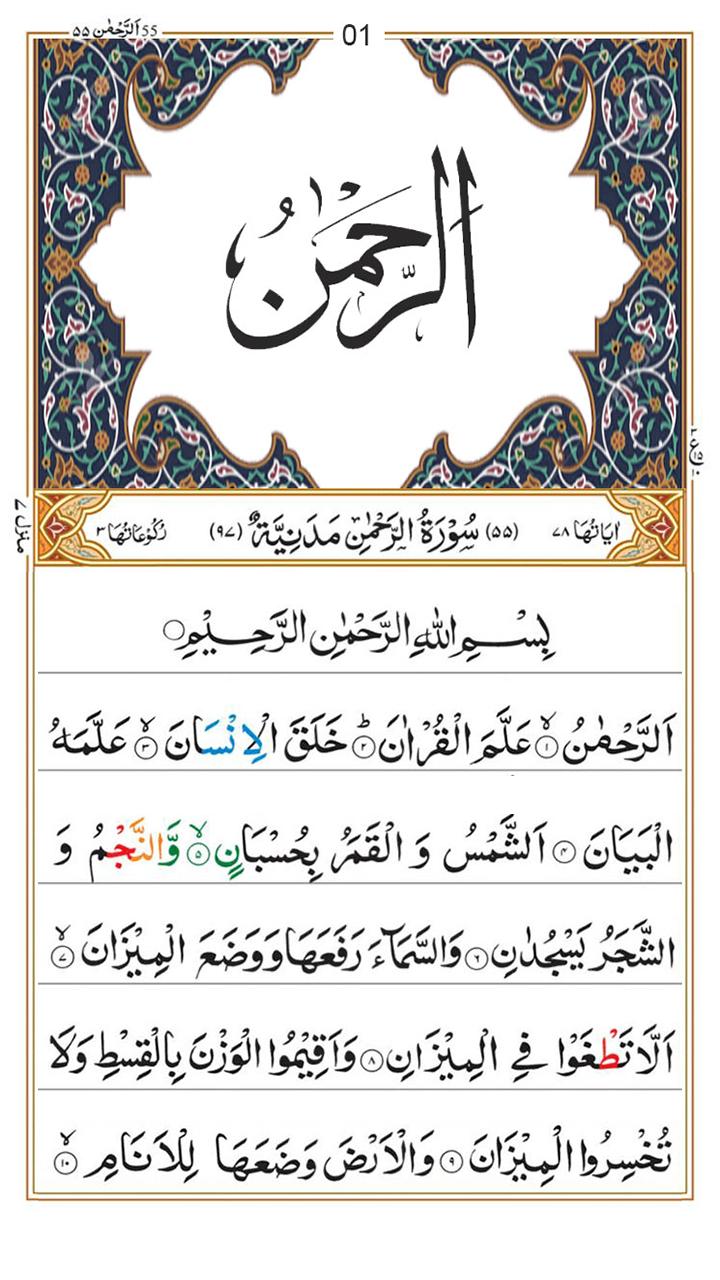 55 اَلرَّحْمٰن ٥٥
01
اَلرَّحْمٰنُ
اٰیَاتُهَا ٧٨ (٥٥) سُوْرَةُ الرَّحْمٰنِ مَدَنِیَّةٌ (٩٧) رُكُوْعَاتُهَا ٣
منزل ٧
بِسْمِ اللهِ الرَّحْمٰنِ الرَّحِیْمِ
اَلرَّحْمٰنُ ۙ﴿١﴾ عَلَّمَ الْقُرْاٰنَ ؕ﴿٢﴾ خَلَقَ الْاِنْسَانَ ۙ﴿٣﴾ عَلَّمَهُ
الْبَیَانَ ﴿٤﴾ اَلشَّمْسُ وَ الْقَمَرُ بِحُسْبَانٍ ۙ﴿٥﴾ وَّالنَّجْمُ وَ
الشَّجَرُ یَسْجُدٰنِ ﴿٦﴾ وَالسَّمَآءَ رَفَعَهَا وَوَضَعَ الْمِیْزَانَ ۙ﴿٧﴾
اَلَّا تَطْغَوْا فِی الْمِیْزَانِ ﴿٨﴾ وَاَقِیْمُوا الْوَزْنَ بِالْقِسْطِ وَلَا
تُخْسِرُوا الْمِیْزَانَ ﴿٩﴾ وَالْاَرْضَ وَضَعَهَا لِلْاَنَامِ ۙ﴿١٠﴾